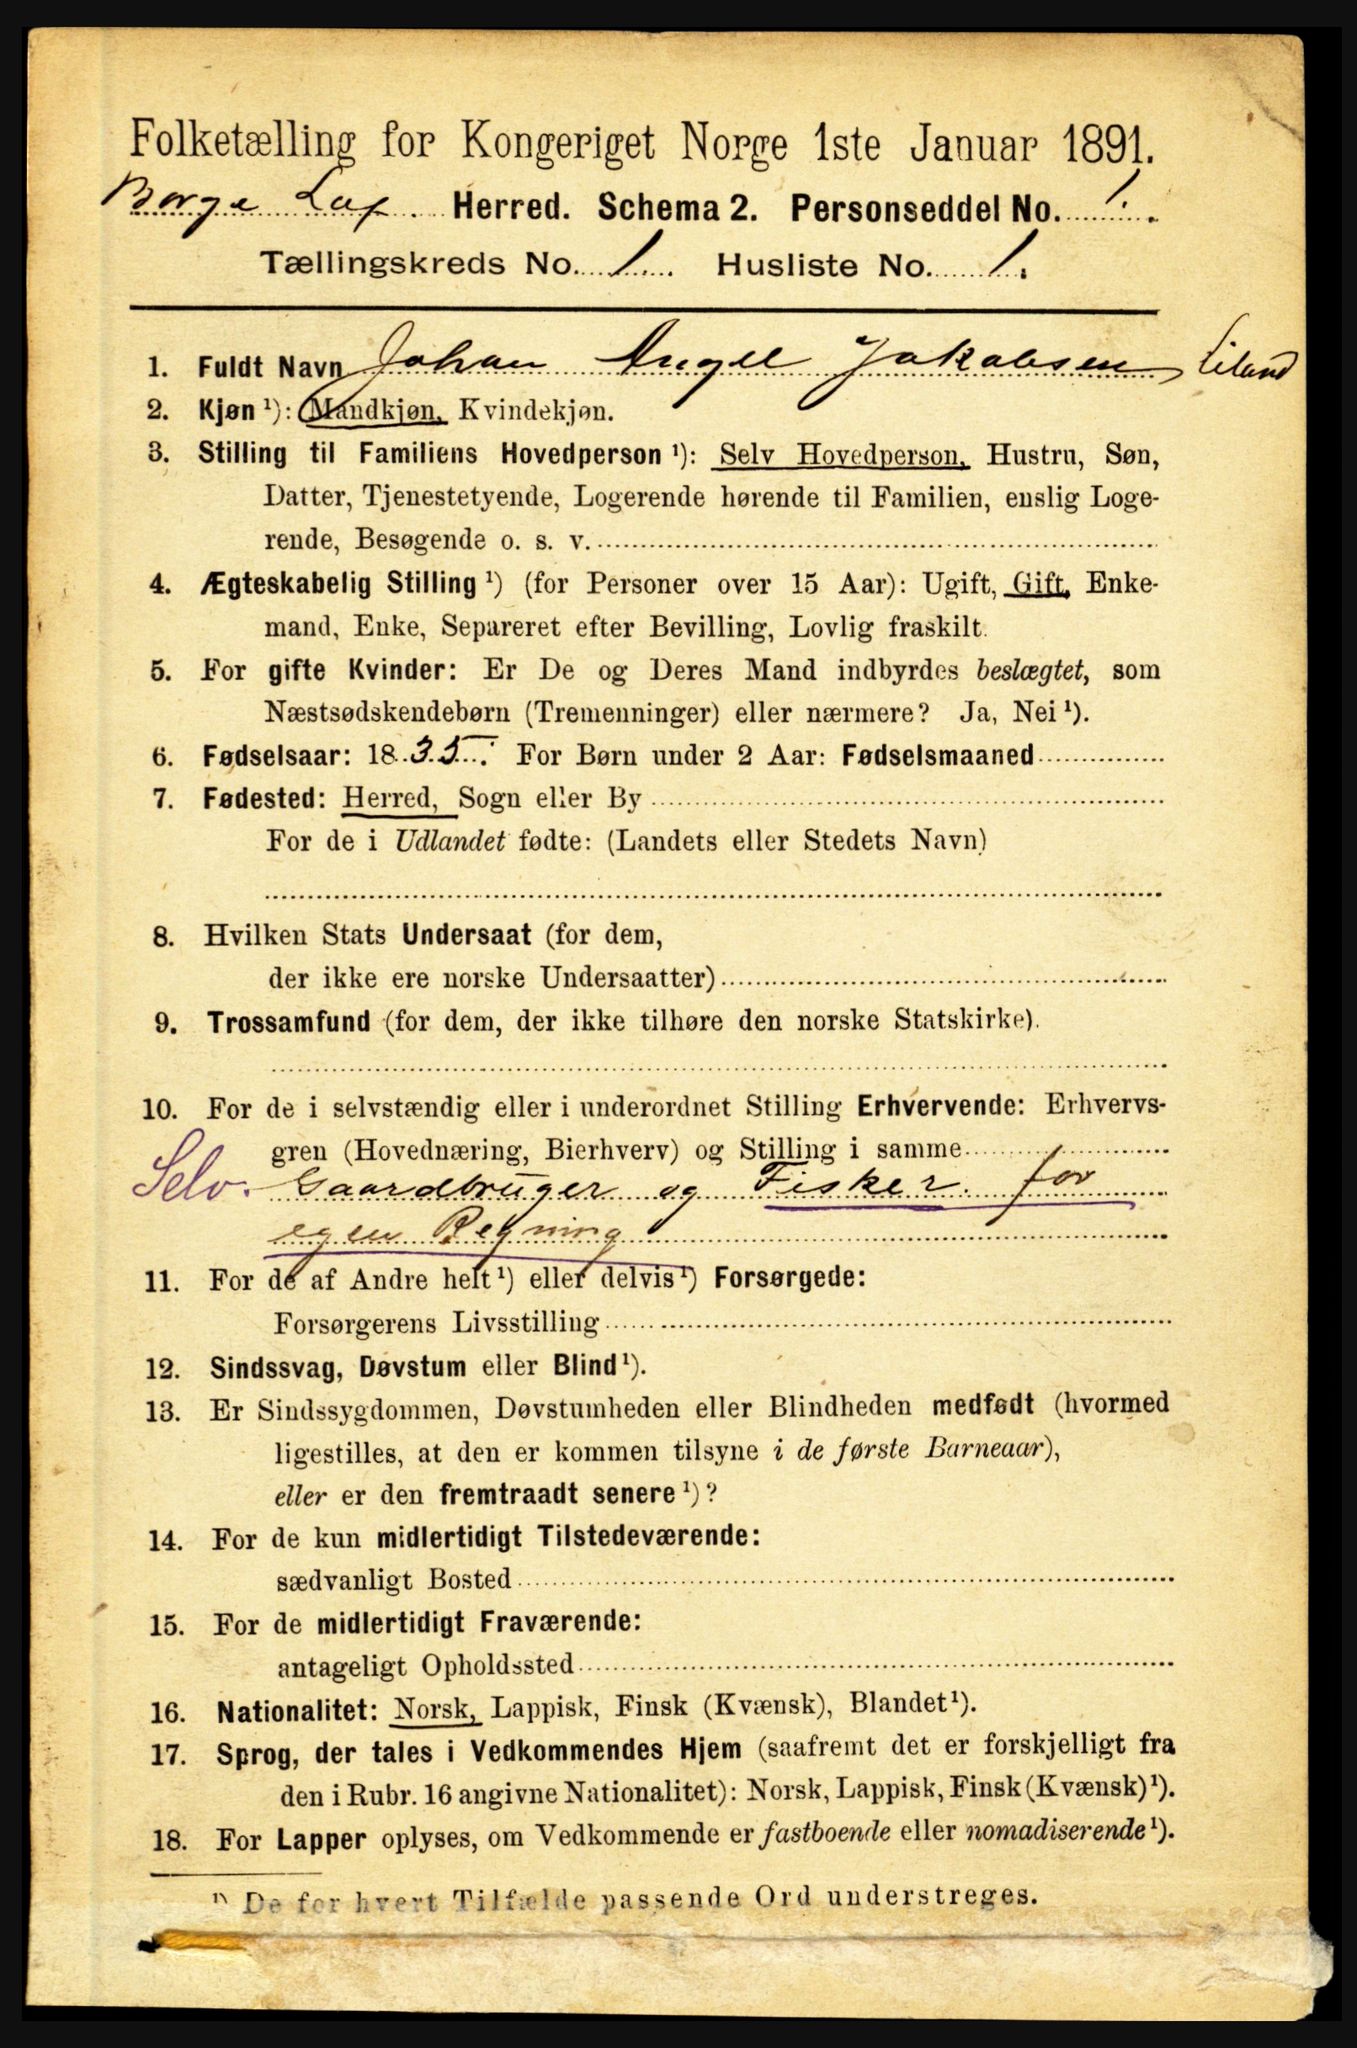 Folketælling for Kongeriget Norge 1ste Januar 1891.
Borge Lof. Herred. Schema 2. Personseddel No. 1.
Tællingskreds No. 1. Husliste No. 1.
1. Fuldt Navn Johan Angel Jakobsen Eiland
2. Kjøn ¹): Mandkjøn, Kvindekjøn.
3. Stilling til Familiens Hovedperson ¹): Selv Hovedperson, Hustru, Søn,
Datter, Tjenestetyende, Logerende hørende til Familien, enslig Loge-
rende, Besøgende o. s. v.
4. Ægteskabelig Stilling ¹) (for Personer over 15 Aar): Ugift, Gift, Enke-
mand, Enke, Separeret efter Bevilling, Lovlig fraskilt.
5. For gifte Kvinder: Er De og Deres Mand indbyrdes beslægtet, som
Næstsødskendebørn (Tremenninger) eller nærmere? Ja, Nei ¹).
6. Fødselsaar: 1835. For Børn under 2 Aar: Fødselsmaaned
7. Fødested: Herred, Sogn eller By
For de i Udlandet fødte: (Landets eller Stedets Navn)
8. Hvilken Stats Undersaat (for dem,
der ikke ere norske Undersaatter)
9. Trossamfund (for dem, der ikke tilhøre den norske Statskirke).
10. For de i selvstændig eller i underordnet Stilling Erhvervende: Erhvervs-
gren (Hovednæring, Bierhverv) og Stilling i samme
Selv. Gaardbruger og Fisker for
egen Regning
11. For de af Andre helt ¹) eller delvis ¹) Forsørgede:
Forsørgerens Livsstilling
12. Sindssvag, Døvstum eller Blind ¹).
13. Er Sindssygdommen, Døvstumheden eller Blindheden medfødt (hvormed
ligestilles, at den er kommen tilsyne i de første Barneaar),
eller er den fremtraadt senere ¹)?
14. For de kun midlertidigt Tilstedeværende:
sædvanligt Bosted
15. For de midlertidigt Fraværende:
antageligt Opholdssted
16. Nationalitet: Norsk, Lappisk, Finsk (Kvænsk), Blandet ¹).
17. Sprog, der tales i Vedkommendes Hjem (saafremt det er forskjelligt fra
den i Rubr. 16 angivne Nationalitet): Norsk, Lappisk, Finsk (Kvænsk) ¹).
18. For Lapper oplyses, om Vedkommende er fastboende eller nomadiserende ¹).
¹) De for hvert Tilfælde passende Ord understreges.